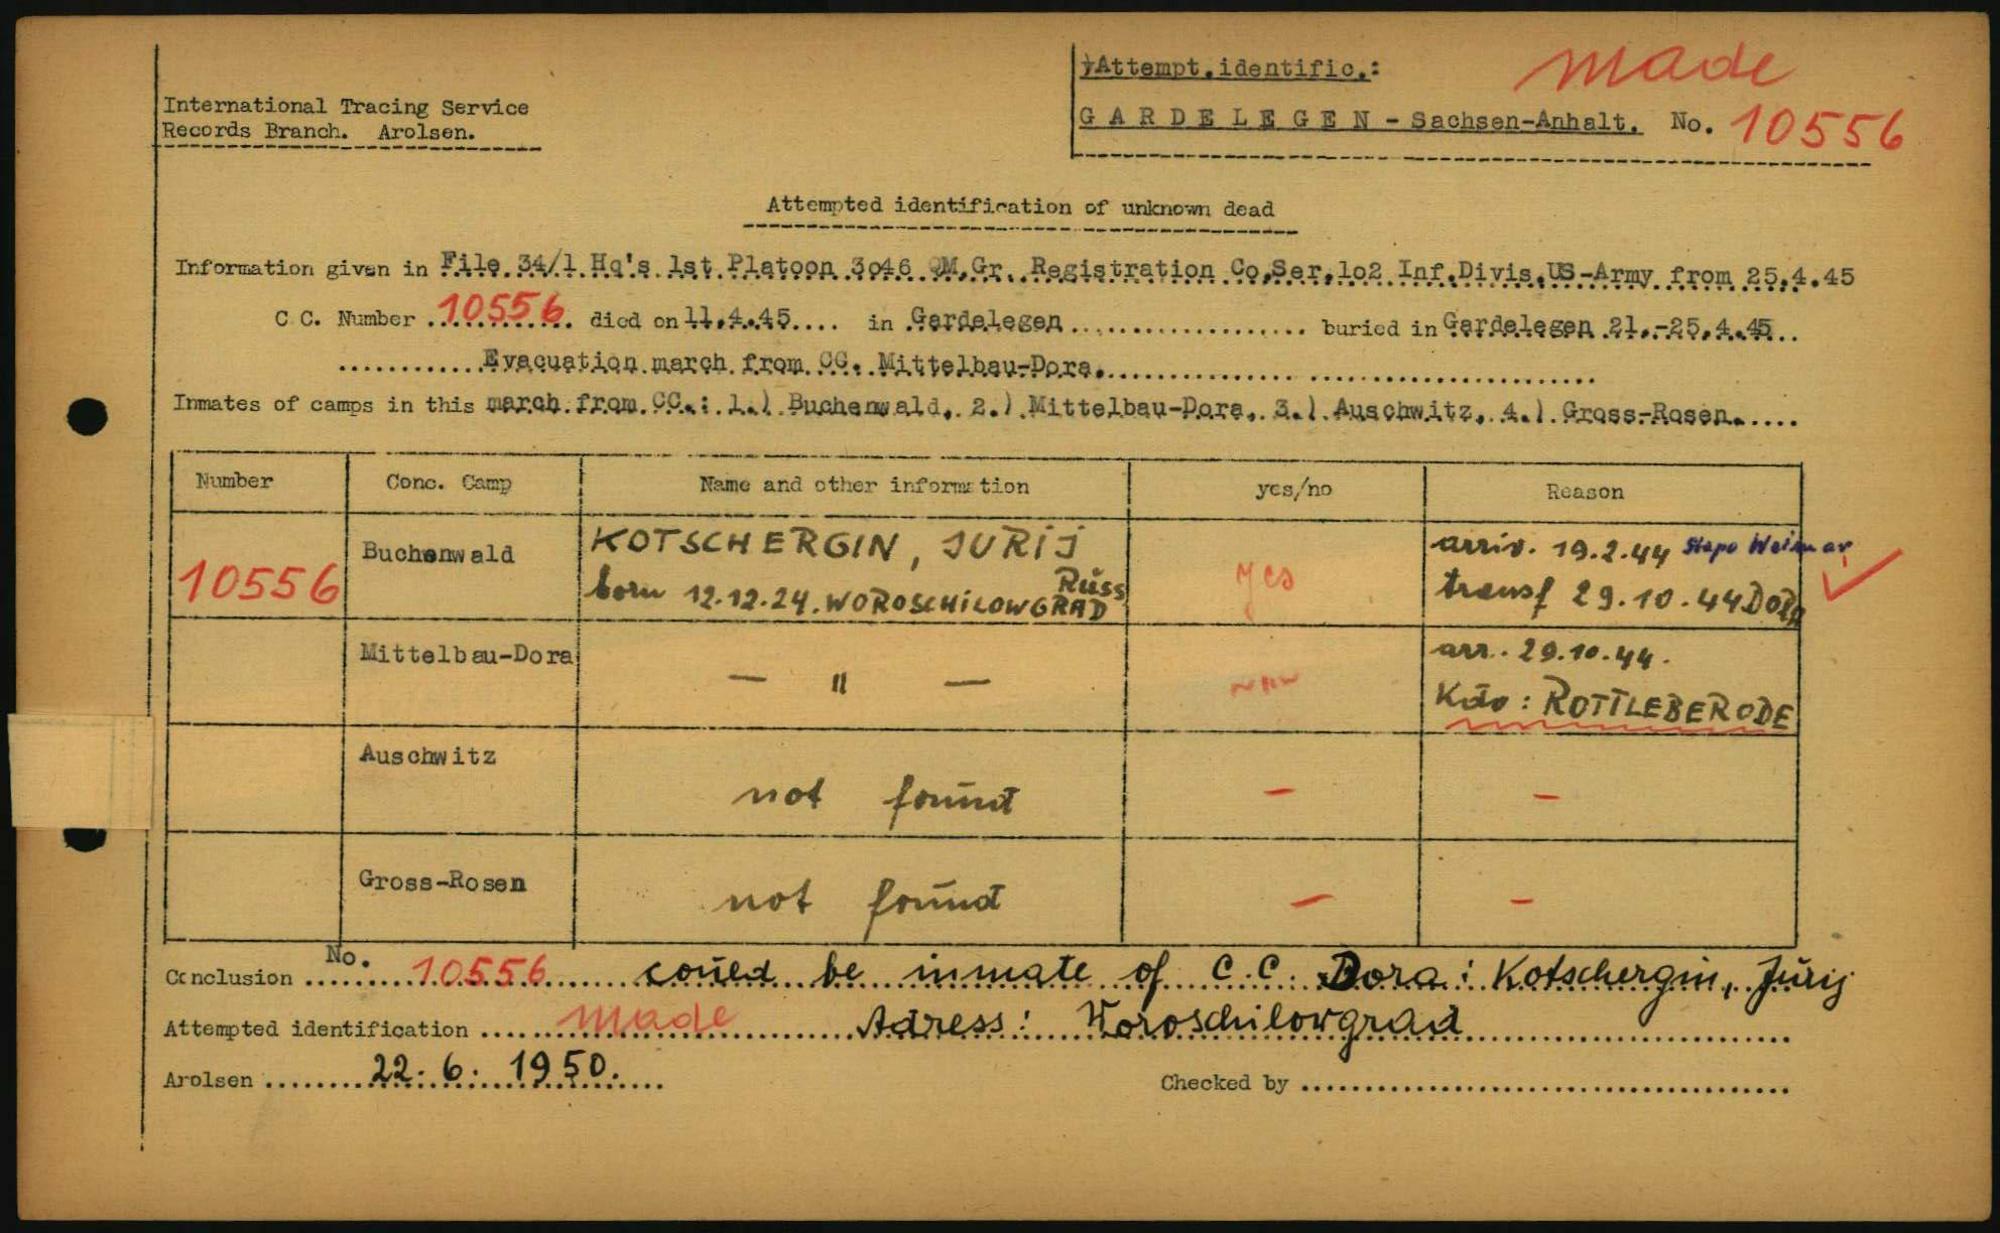 Attempt.identific.: made
International Tracing Service
Records Branch. Arolsen.
GARDELEGEN - Sachsen-Anhalt. No. 10556
Attempted identification of unknown dead
Information given in File 34/1 Hq's 1st Platoon 3o46 QM.Gr. Registration Co,Ser,1o2 Inf.Divis.US-Army from 25.4.45
C C. Number 10556 died on 11.4.45.... in Gardelegen .................... buried in Gardelegen 21.-25.4.45..
............Evacuation march from CC. Mittelbau-Dora...................................
Inmates of camps in this march from CC.: 1.) Buchenwald, 2.) Mittelbau-Dora, 3.) Auschwitz, 4.) Gross-Rosen.....
Number Conc. Camp Name and other information yes/no Reason
10556 Buchenwald KOTSCHERGIN, JURIJ yes arriv. 19.2.44 Stapo Weimar
born 12.12.24. WOROSCHILOWGRAD Russ transf 29.10.44 DORA
Mittelbau-Dora — " — arr. 29.10.44.
Kdo: ROTTLEBERODE
Auschwitz not found - -
Gross-Rosen not found - -
Conclusion No. 10556 could be inmate of C.C. Dora: Kotschergin, Jurij
Attempted identification made Adress: Woroschilowgrad
Arolsen 22. 6. 1950. Checked by ........................................